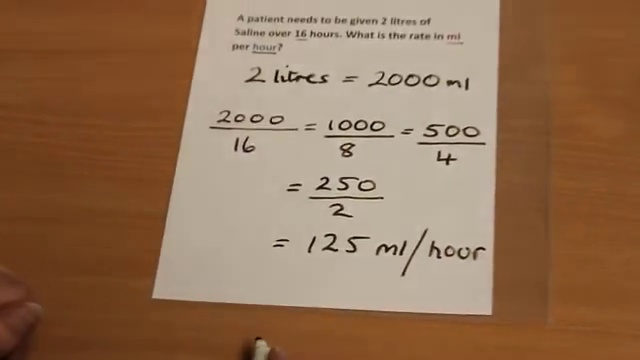 A patient needs to be given 2 litres of
Saline over 16 hours. What is the rate in ml
per hour?
2 litres = 2000 ml
2000/16 = 1000/8 = 500/4
= 250/2
= 125 ml/hour